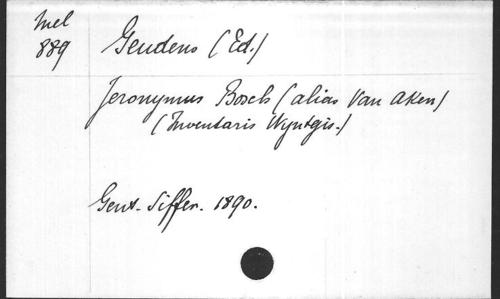 Mel
889
Geudens (Ed.)
Jeronymus Bosch (alias Van Aken)
(Inventaris Wyntgis.)
Gent. Siffer. 1890.